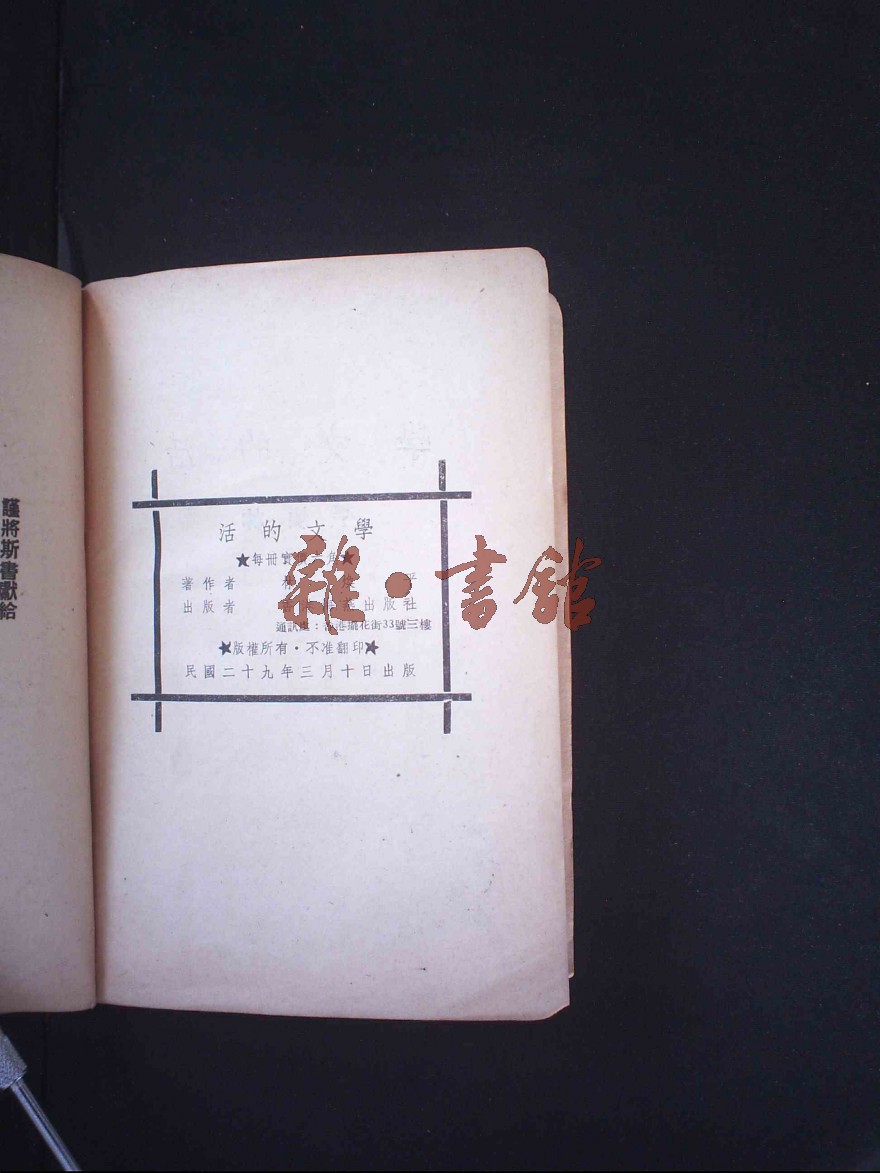 活的文學
★每冊實價 角★
著作者 林 平
出版者 出版社
通訊處:香港 花街33號三樓
★版權所有·不准翻印★
民國二十九年三月十日出版
謹將斯書獻給
雜·書館